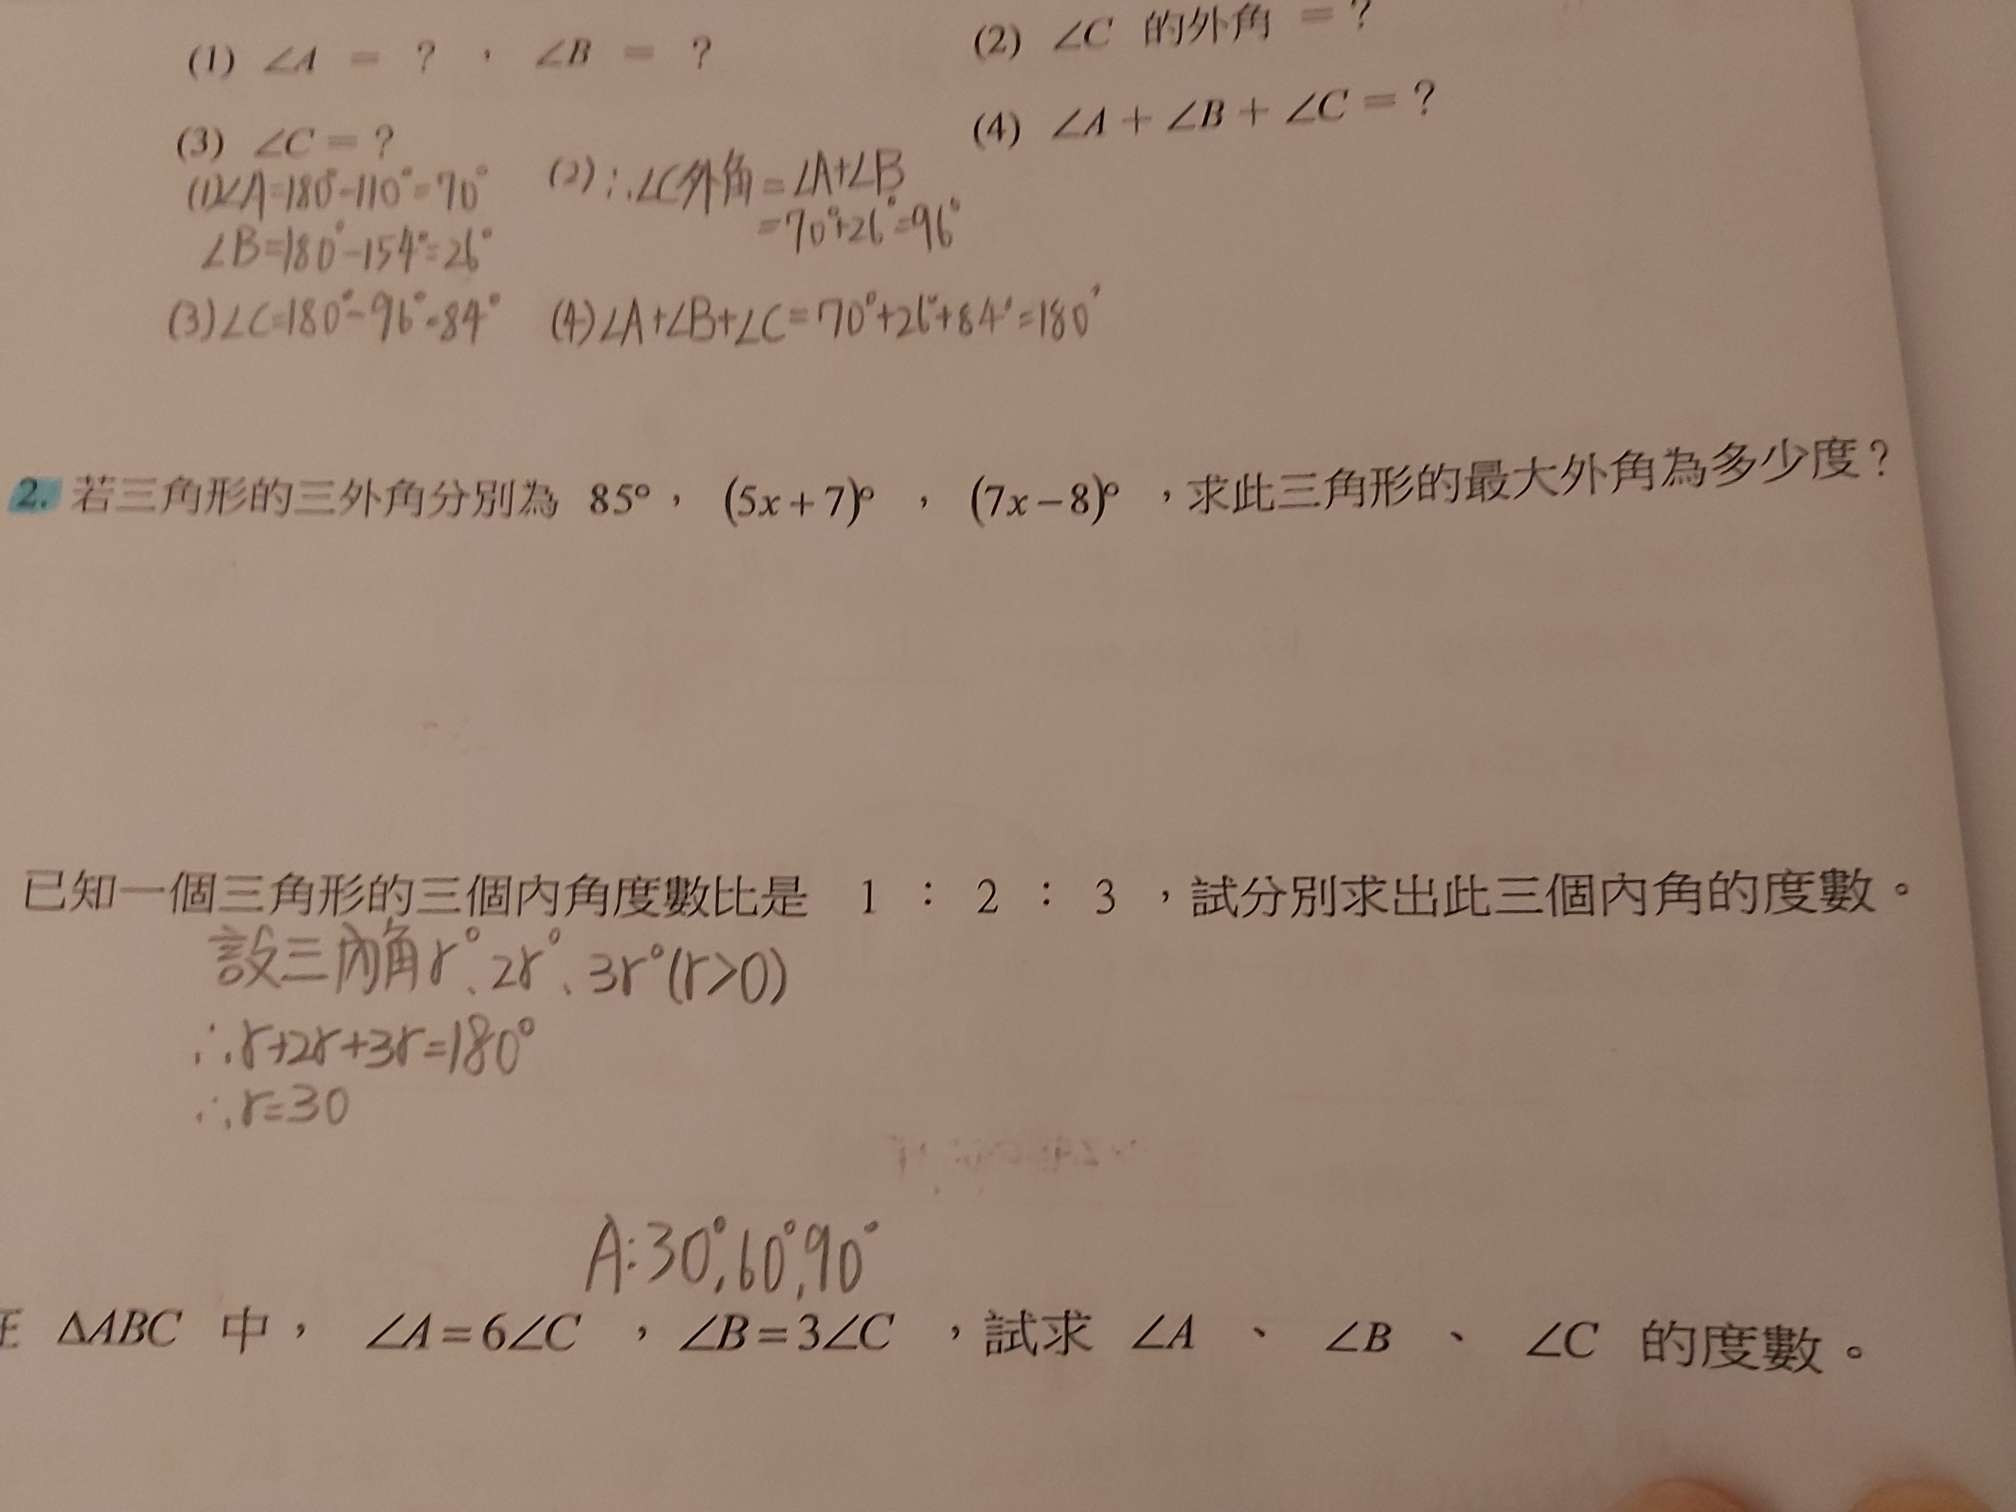 (1) ∠A = ? , ∠B = ?
(2) ∠C 的外角 = ?
(3) ∠C = ?
(4) ∠A + ∠B + ∠C = ?
(1)∠A=180°-110°=70°
∠B=180°-154°=26°
(2)∴∠C外角=∠A+∠B
=70°+26°=96°
(3)∠C=180°-96°=84°
(4)∠A+∠B+∠C=70°+26°+84°=180°
2. 若三角形的三外角分別為 85°, (5x+7)° , (7x-8)° ,求此三角形的最大外角為多少度?
已知一個三角形的三個內角度數比是 1 : 2 : 3 ,試分別求出此三個內角的度數。
設三內角r°、2r°、3r°(r>0)
∴r+2r+3r=180°
∴r=30
A:30°,60°,90°
ΔABC 中, ∠A=6∠C ,∠B=3∠C ,試求 ∠A 、 ∠B 、 ∠C 的度數。